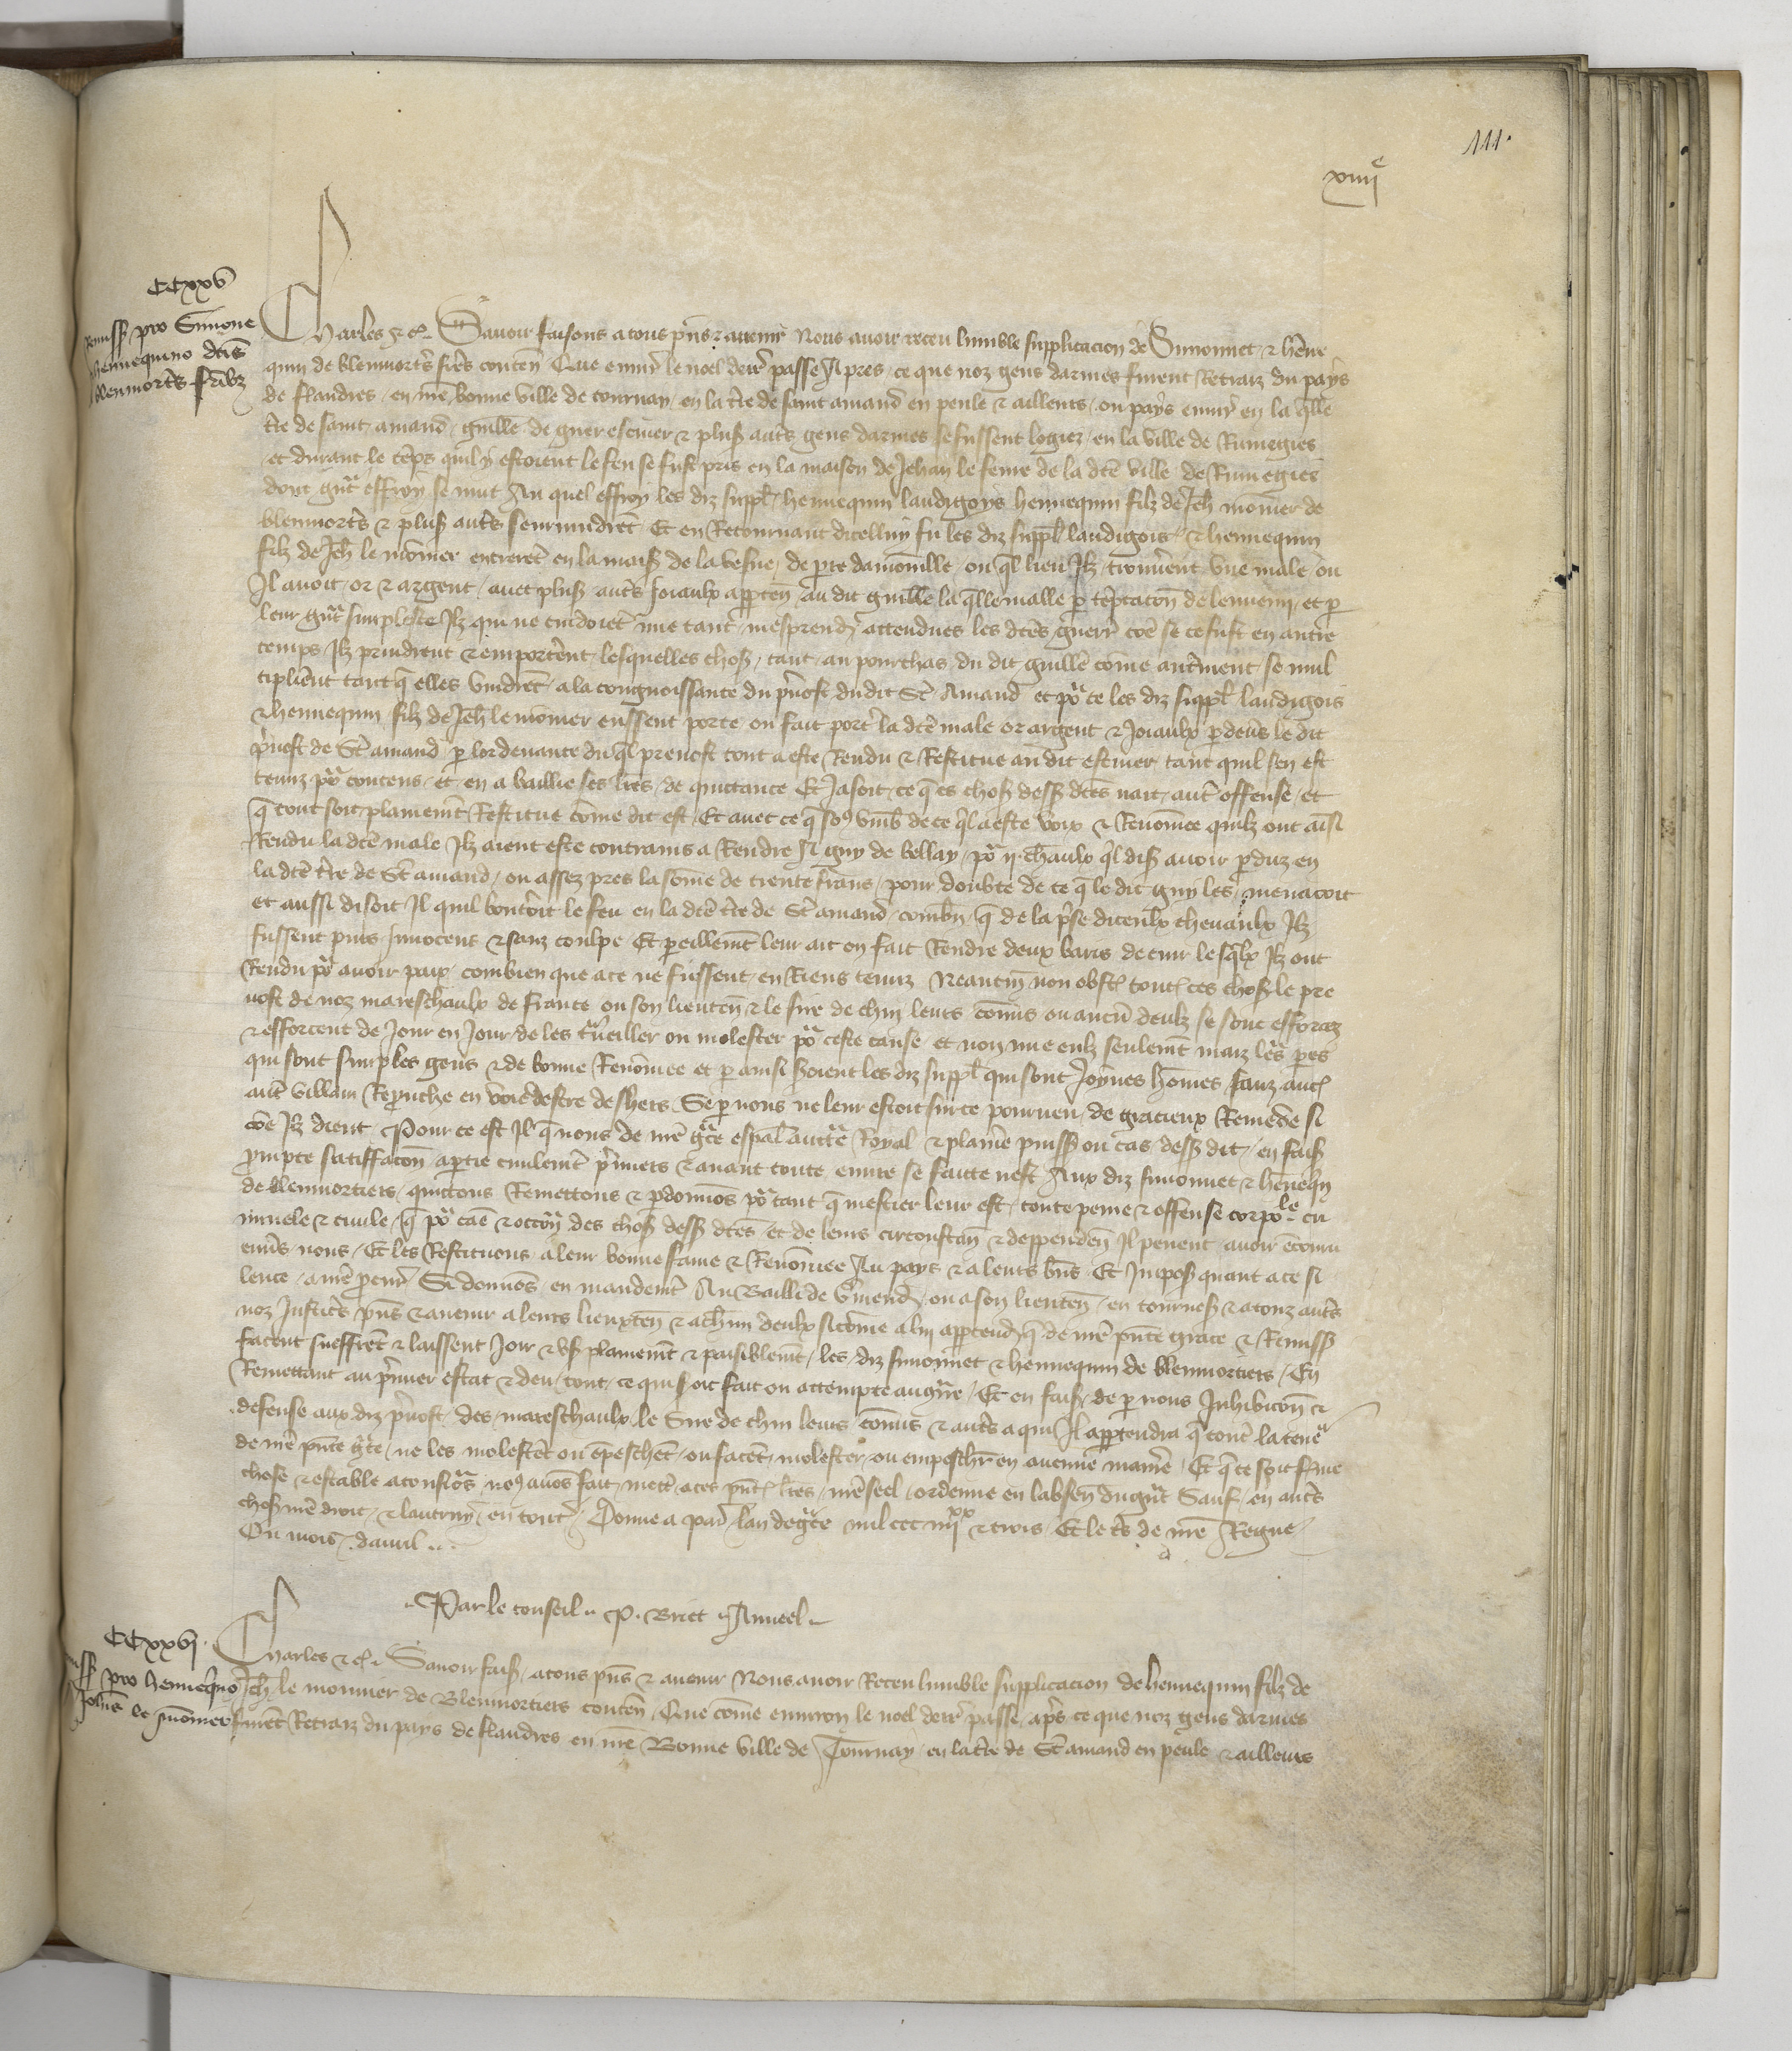 111.
xiiiie
CCxxv
Remiss pro Simone
hennequino dcis
blenmortes fribz
Charles etc. Savoir faisons a tous pns et avenir Nous avoir receu lumble supplicacion de Simonnet et henne
quin de blenmortes fres conten Que envir le noel derr passe Apres ce que noz gens darmes furent Retraiz du pays
de flandres en nre bonne ville de tournay en la tre de saint amand en peule et ailleurs ou pays envir en la qlle
tre de saint amand guille de escuier et plus autres gens darmes se fussent logiez en la ville de Rumegies
et durant le teps quil y estoient le feu se fust pris en la maison de Jehan le fevre de la dce ville de Rumegies
dont gnt effroy se mut Au quel effroy les diz suppl hennequin laudigoys hennequin filz de Jeh monnier de
blenmortes et plus autres seurvindret Et en Retournant dicelluy fu les diz suppl laudigois et hennequin
filz de Jeh le monnier entreret en la mais de la vesve de pte damouille ou ql lieu Ilz trouverent une male ou
Il avoit or et argent avec plus autres Joiaulx apparten au dit guille la qlle malle p teptacon de lennemy et p
leur gnt simplesce Ilz qui ne cuidoiet mie tant mesprendr attendues les dces guerr coe se ce fust en autre
temps Ilz prindrent et emporterent lesquelles chos tant au pourchas du dit guille come autrement se mul
tiplierent tant q elles vindret a la congnoissance du pvost dudit St Amand et por ce les diz suppl laudigois
et hennequin filz de Jeh le monnier eussent porte ou fait porter la dce male or argent et Joiaulx p devs le dit
pvost de St amand p lordenance du ql prevost tout a este Rendu et Restitue au dit escuier tant quil sen est
tenuz por contens et en a baillie ses lres de quittance Et Jasoit ce q es chos dess dces nait autre offense et
q tout soit plainemt Restitue come dit est Et avec ce q soubz umbr de ce ql a este voix et Renomee quilz ont aisi
Rendu la dce male Ilz aient este contrains a Rendre A guy de bellay por ij chevaulx ql dis avoir pduz en
la dce tre de St amand ou assez pres la some de trente frans pour doubte de ce q le dit guy les menacoit
et aussi disoit Il quil bouteroit le feu en la dce tre de St amand combn q de la prse diceulx chevaulx Ilz
fussent purs Innocens et sanz coulpe Et pareillemt leur ait on fait Rendre deux baris de cuir lesqlx Ilz ont
Rendu por avoir paix combien que a ce ne fussent en Riens tenuz Neantm non obst tout ces chos le pre
vost de noz mareschaulx de france ou son lieuten et le sire de chin leurs comis ou aucun deulx se sont efforcez
et efforcent de Jour en Jour de les traveiller ou molester por ceste cause et non mie eulx seulemt maiz leurs peres
qui sont simples gens et de bonne Renomee et p ainsi seroient les diz suppl qui sont Joynes homes sanz autr
autre villain Reprouche en voie destre desers Se p nous ne leur estoit sur ce pourveu de gracieux Remede si
coe Ilz dient Pour ce est Il q nous de nre gce espal auctte Royal et plaine puiss ou cas dess dit en fais
prompte satiffacon a ptie civilemt pmiers et avant toute euvre se faicte nest Aux diz simonnet et hennequin
de blenmortiers quictons Remettons et pdonnos por tant q mestier leur est toute peine et offense corporele cri
minele et civile q por cae et occon des chos dess dces et de leurs circonstan et deppenden Il pevent avoir encouru
envs nous Et les Restituons a leur bonne fame et Renomee Au pays et a leurs bns Et Impos quant a ce si
lence a nre pcur Si donnos en mandemt Au Bailli de Vmend ou a son lieuten en tournes et a touz autres
noz Justices pns et avenir a leurs lieuxten et a chun deulx si come a luy appartend q de nre pnte grace et Remiss
facent sueffret et laissent Joir et us plainemt et paisiblemt les diz simonnet et hennequin de blenmortiers En
Remettant au pmier estat et deu tout ce qui soit fait ou attempte au contre Et en fais de p nous Inhibicon et
defense aux diz pvost des mareschaulx le Sire de chin leurs comis et autres a qui Il appartendra q contre la teneur
de nre pnte gce ne les molestet ou epeschet ou facet molester ou empescher en aucune maniere Et q ce soit ferme
chose et estable a tousjrs no avos fait mett a ces pnt lres nre seel ordenne en labsen du gnt Sauf en autres
chos nre droit et lautruy en tout Donne a par lan de gce mil ccc iiijxx et trois Et le tiers de nre Regne
Ou mois davril
Par le conseil P. Briet Anneel
CCxxvj
Remiss pro hennequino
Johis le monnier
Charles etc. Savoir fais a tous pns et avenir Nous avoir Receu lumble supplicacion de hennequin filz de
Jeh le monnier de Blenmortiers conten Que come environ le noel derr passe apres ce que noz gens darmes
furent Retraiz du pays de flandres en nre Bonne ville de Tournay en la tre de St amand en peule et ailleurs